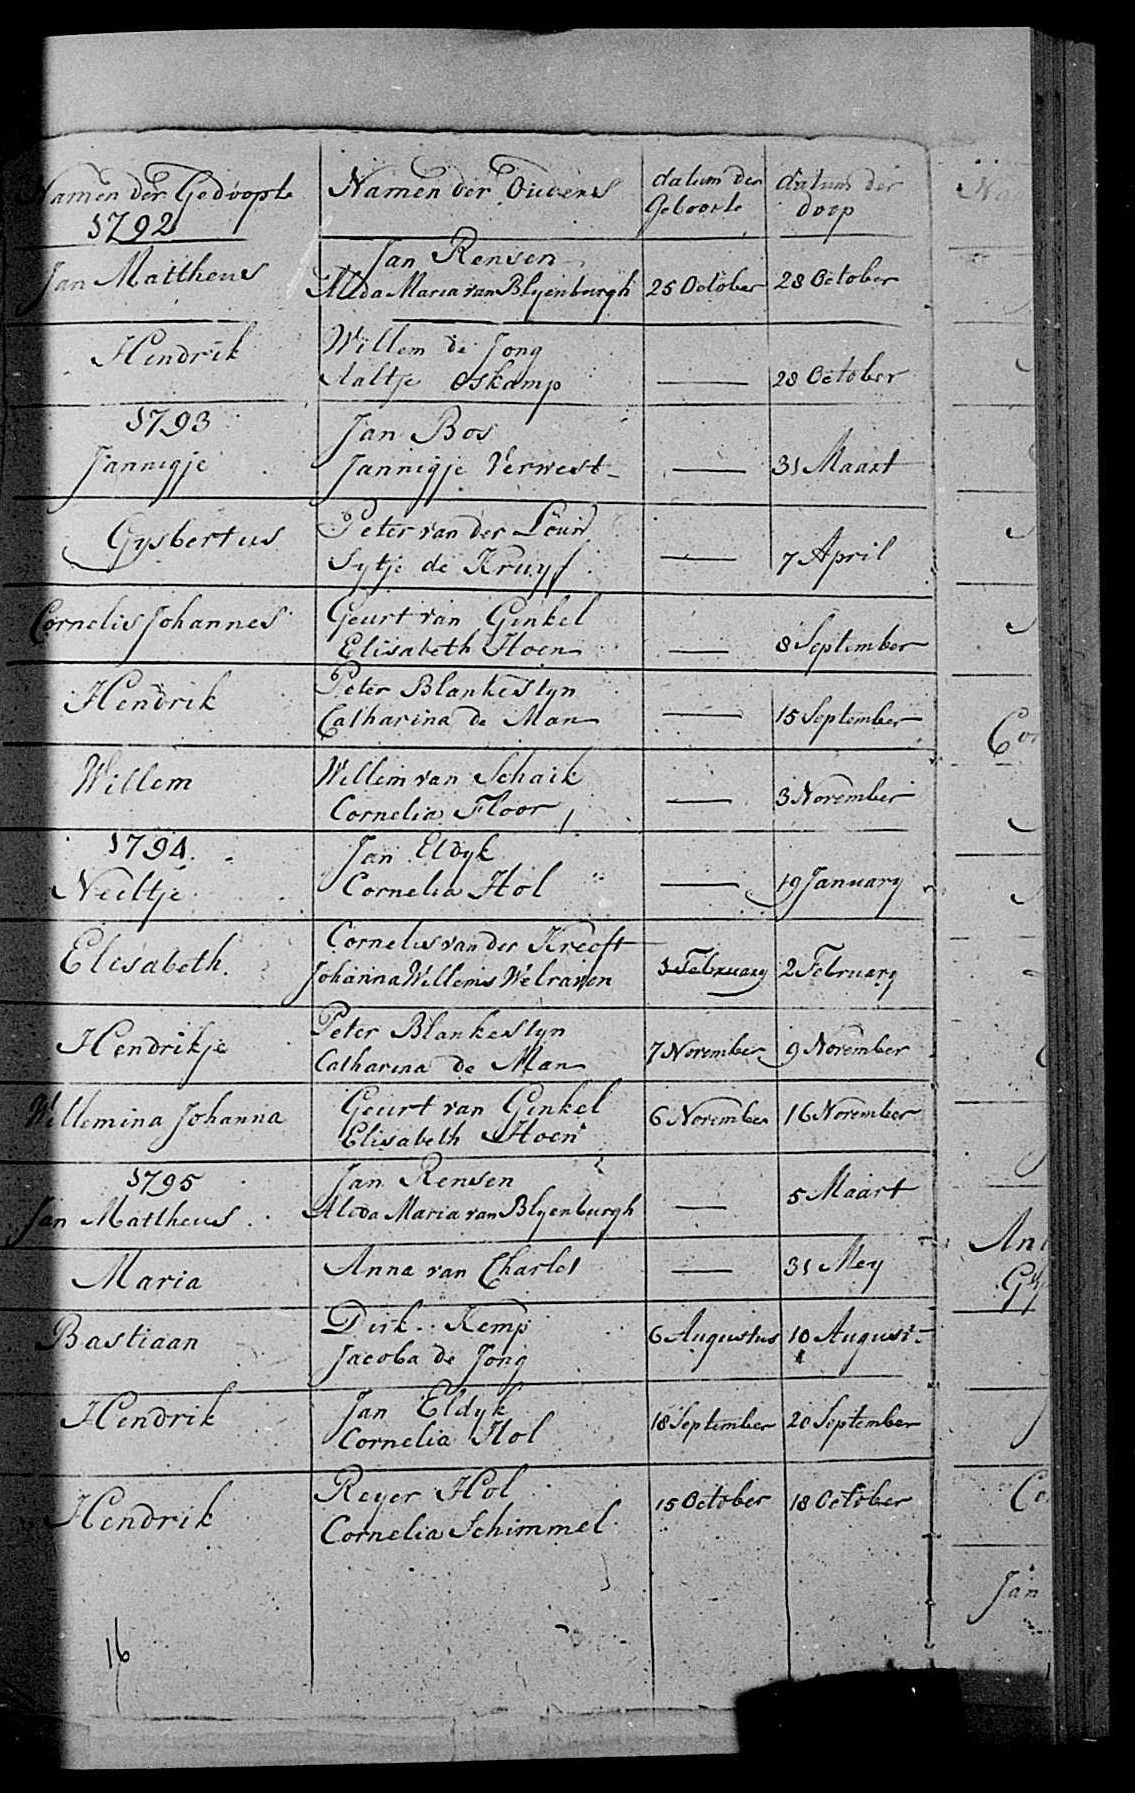 Namen der Gedoopte Namen der Ouders datum der datum der
1792 Geboorte doop
Jan Mattheus Jan Rensen
Alida Maria van Blyenburgh 25 October 28 October
Hendrik Willem de Jong
Aaltje Oskamp — 28 October
1793 Jan Bos
Jannigje Jannigje Verwest — 31 Maart
Gysbertus Peter van der Louw
Sytje de Kruyf — 7 April
Cornelis Johannes Geurt van Ginkel
Elisabeth Hoen — 8 September
Hendrik Peter Blankestyn
Catharina de Man — 15 September
Willem Willem van Schaik
Cornelia Floor — 3 November
1794 Jan Eldyk
Neeltje Cornelia Hol — 19 January
Elisabeth Cornelis van der Kreeft
Johanna Willems Welraven 1 February 2 February
Hendrikje Peter Blankestyn
Catharina de Man 7 November 9 November
Willemina Johanna Geurt van Ginkel
Elisabeth Hoen 6 November 16 November
1795 Jan Rensen
Jan Mattheus Aleda Maria van Blyenburgh — 5 Maart
Maria Anna van Charlet — 31 Mey
Bastiaan Dirk Kemp
Jacoba de Jong 6 Augustus 10 August
Hendrik Jan Eldyk
Cornelia Hol 18 September 20 September
Hendrik Reyer Hol
Cornelia Schimmel 15 October 18 October
16